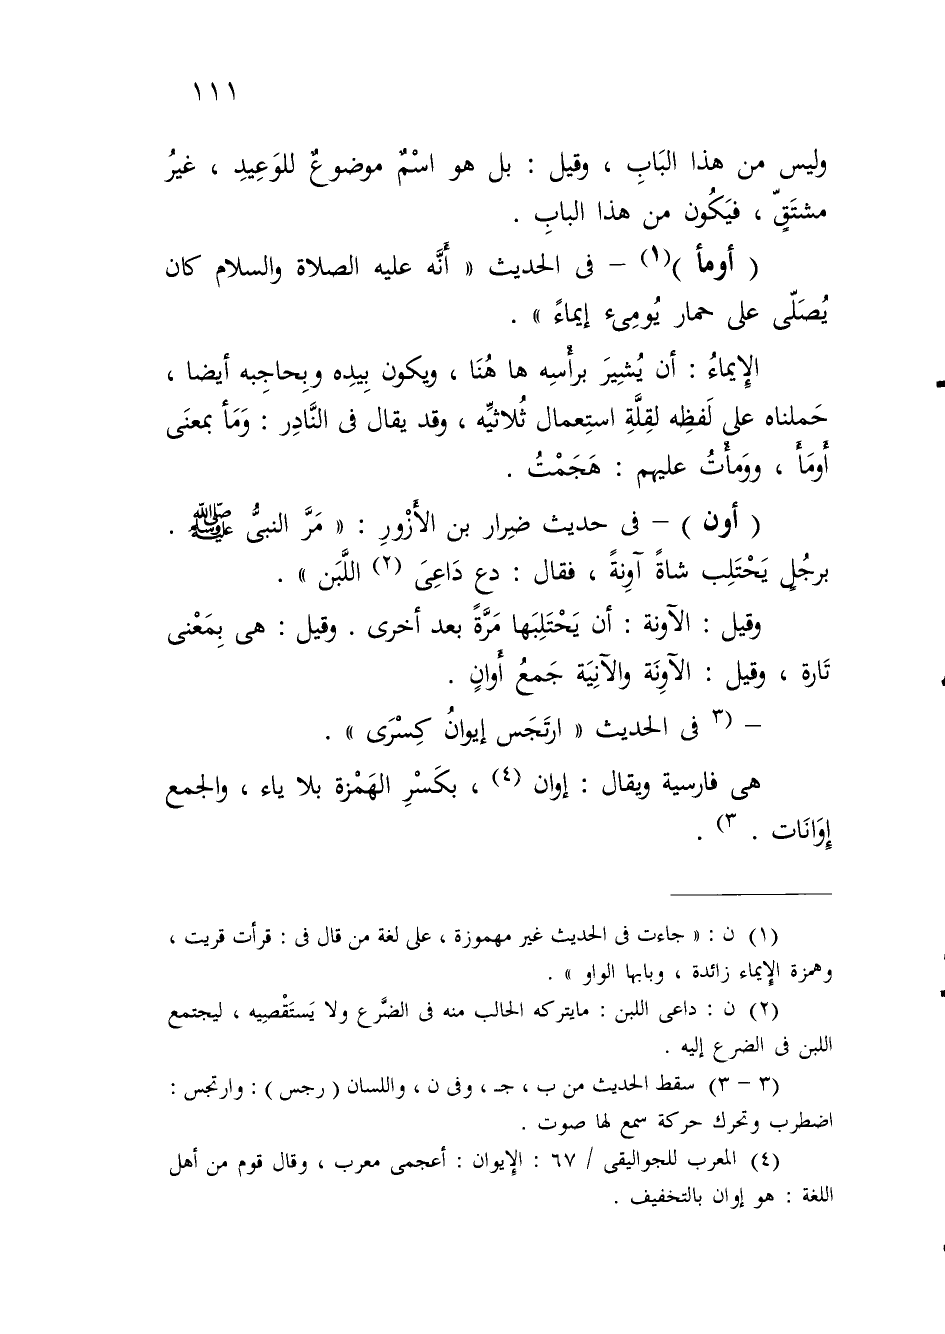 ١١١
وليس من هذا البَابِ ، وقيل : بل هو اسْمٌ موضوعٌ للوَعِيدِ ، غيرُ
مشتَقٍّ ، فيَكُون من هذا البابِ .
( أومأ )(١) – فى الحديث « أَنَّه عليه الصلاة والسلام كان
يُصَلّى على حمار يُومِىء إيماءً » .
الإِيماءُ : أن يُشيِرَ برأْسِه ها هُنَا ، ويكون بِيدِه وبِحاجِبه أيضا ،
حَملناه على لَفظِه لقِلَّةِ استِعمال ثُلاثيِّه ، وقد يقال فى النَّادِر : وَمَأ بمعنَى
أَومَأَ ، ووَمأْتُ عليهم : هَجَمْتُ .
( أون ) – فى حديث ضِرار بن الأَزْورِ : « مَرَّ النبىُّ ﷺ .
برجُلٍ يَحْتَلِب شاةً آوِنةً ، فقال : دع دَاعِىَ (٢) اللَّبَن » .
وقيل : الآونة : أن يَحْتَلِبَها مَرَّةً بعد أخرى . وقيل : هى بِمَعْنى
تَارة ، وقيل : الآوِنَة والآنِيَة جَمعُ أَوانٍ .
– (٣ فى الحديث « ارتَجَس إيوانُ كِسْرَى » .
هى فارسية ويقال : إوان (٤) ، بكَسْرِ الهَمْزة بلا ياء ، والجمع
إِوَانَات . ٣) .
(١) ن : « جاءت فى الحديث غير مهموزة ، على لغة من قال فى : قرأت قريت ،
وهمزة الإِيماء زائدة ، وبابها الواو » .
(٢) ن : داعى اللبن : مايتركه الحالب منه فى الضَّرع ولا يَستَقْصِيه ، ليجتمع
اللبن فى الضرع إليه .
(٣ – ٣) سقط الحديث من ب ، جـ ، وفى ن ، واللسان ( رجس ) : وارتجس :
اضطرب وتحرك حركة سمع لها صوت .
(٤) المعرب للجواليقى / ٦٧ : الإيوان : أعجمى معرب ، وقال قوم من أهل
اللغة : هو إوان بالتخفيف .